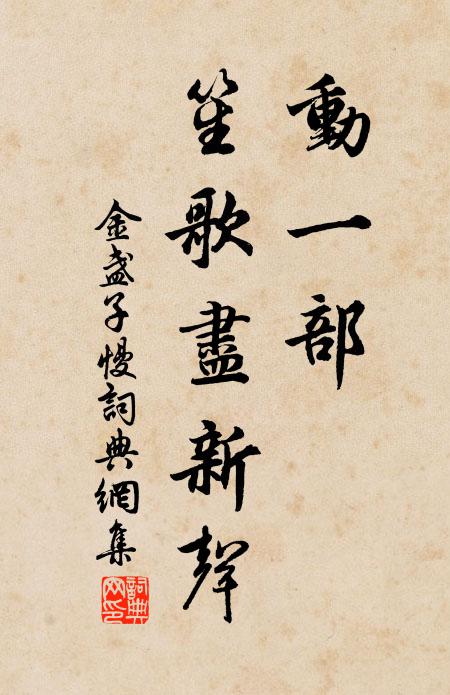 動一部
笙歌盡新聲
金盞子慢詞典網集
詞典網印